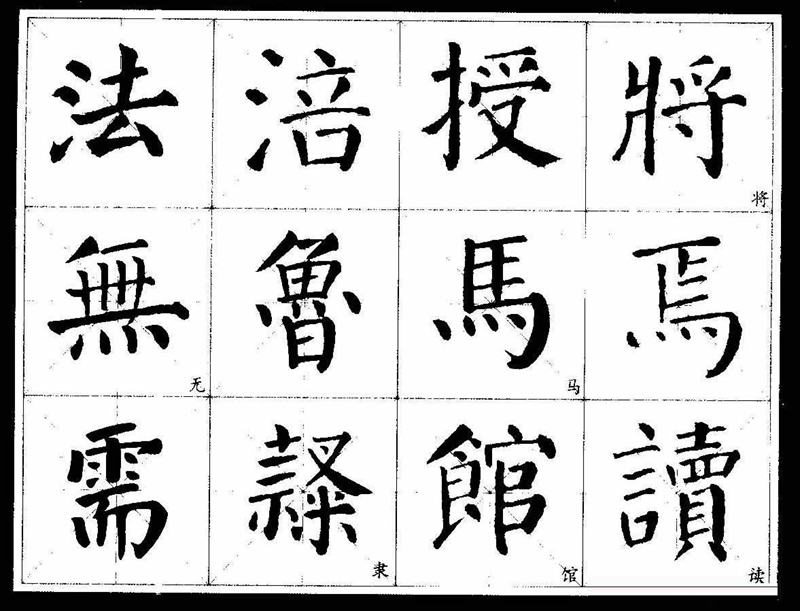 法 涪 授 將 将
無 无 魯 馬 马 焉
需 隸 隶 館 馆 讀 读